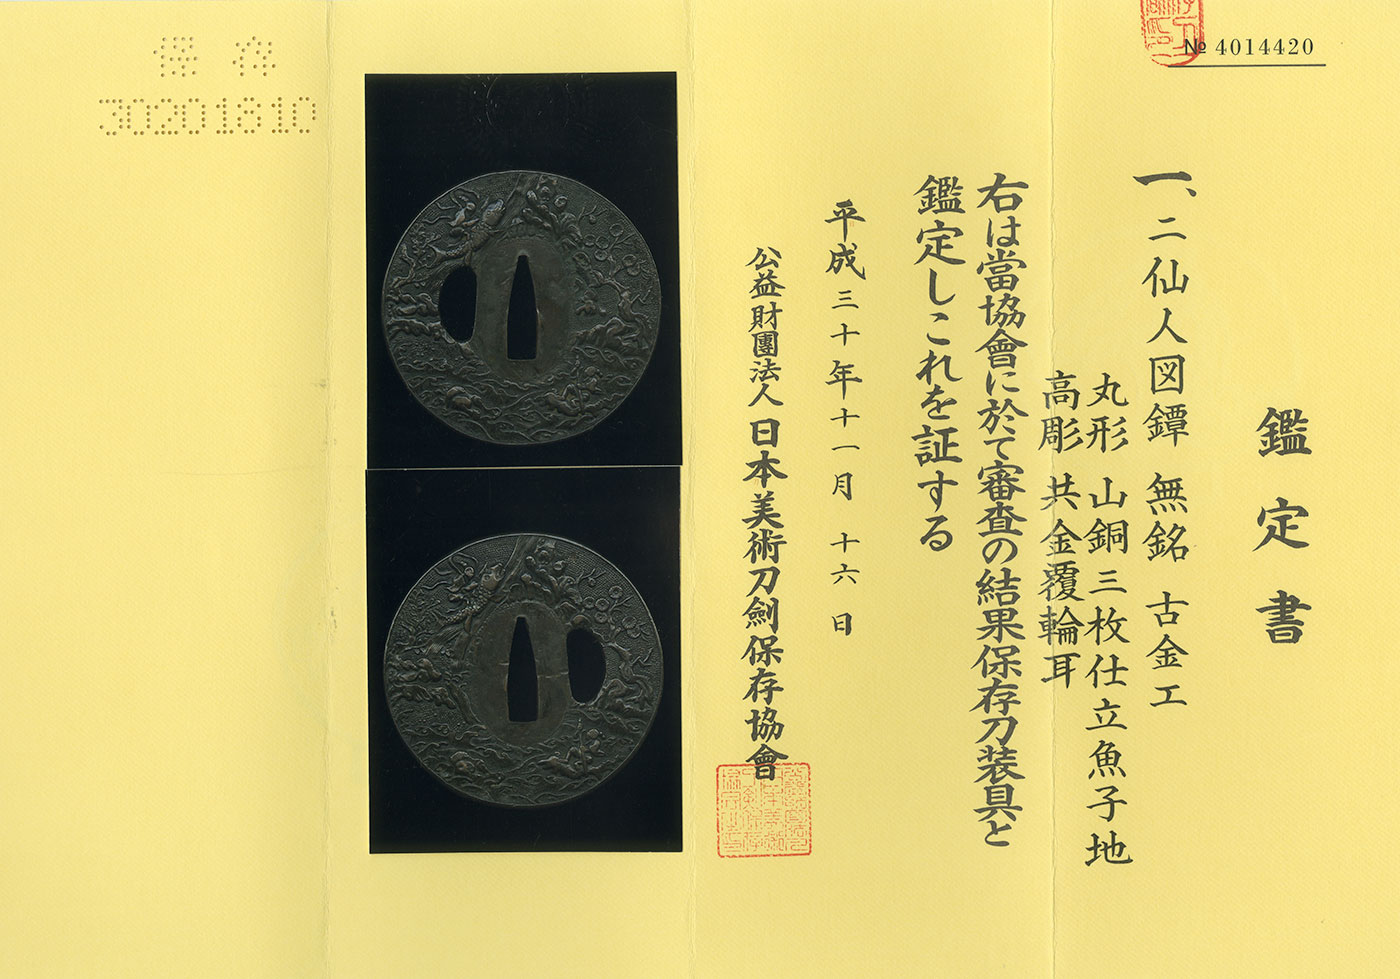 № 4014420
鑑定書
一、二仙人図鐔 無銘 古金工
丸形 山銅三枚仕立魚子地
高彫 共金覆輪耳
右は當協會に於て審査の結果保存刀装具と
鑑定しこれを証する
平成三十年十一月十六日
公益財團法人 日本美術刀劍保存協會
保存
30201810